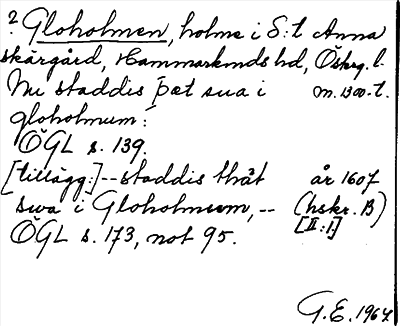 ? Gloholmen, holme i S:t Anna
skärgård, Hammarkinds hd, Östrg. l.
Nu staddis þæt sua i m. 1300-t.
gloholmum:
ÖGL s. 139.
[tillägg:] -- staddis thät år 1607
swa i Gloholmum, -- (hskr. B)
[II:1]
ÖGL s. 173, not 95.
G.E. 1964